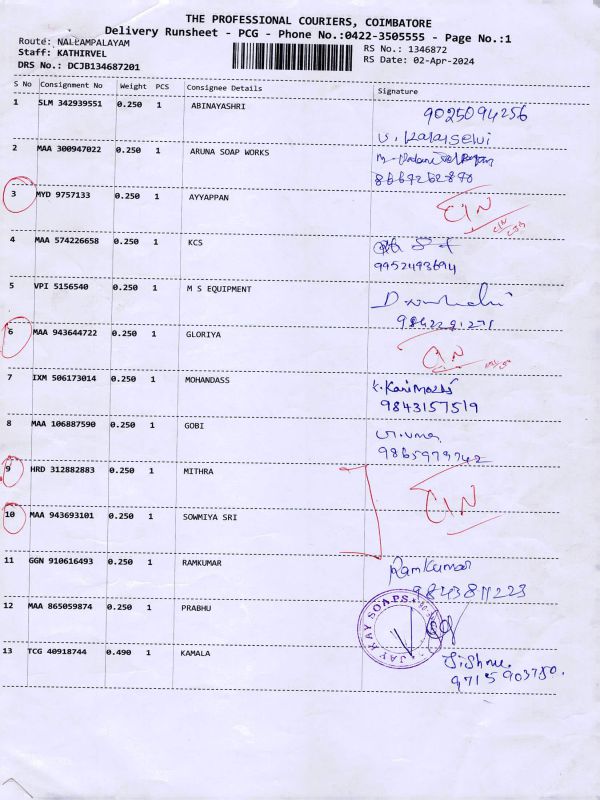 THE PROFESSIONAL COURIERS, COIMBATORE
Delivery Runsheet - PCG - Phone No.:0422-3505555 - Page No.:1
Route: NALLAMPALAYAM RS No.: 1346872
Staff: KATHIRVEL RS Date: 02-Apr-2024
DRS No.: DCJB134687201
S No Consignment No Weight PCS Consignee Details Signature
1 SLM 342939551 0.250 1 ABINAYASHRI 9025094256
V. Kalaiselvi
2 MAA 300947022 0.250 1 ARUNA SOAP WORKS
8667262890
3 MYD 9757133 0.250 1 AYYAPPAN CIN
4 MAA 574226658 0.250 1 KCS
9952493694
5 VPI 5156540 0.250 1 M S EQUIPMENT
6 MAA 943644722 0.250 1 GLORIYA CIN
7 IXM 506173014 0.250 1 MOHANDASS
9843157519
8 MAA 106887590 0.250 1 GOBI
9865979742
9 HRD 312882883 0.250 1 MITHRA
CIN
10 MAA 943693101 0.250 1 SOWMIYA SRI
11 GGN 910616493 0.250 1 RAMKUMAR Ramkumar
9843811223
12 MAA 865059874 0.250 1 PRABHU JAY KAY SOAPS
13 TCG 40918744 0.490 1 KAMALA
9715903750.